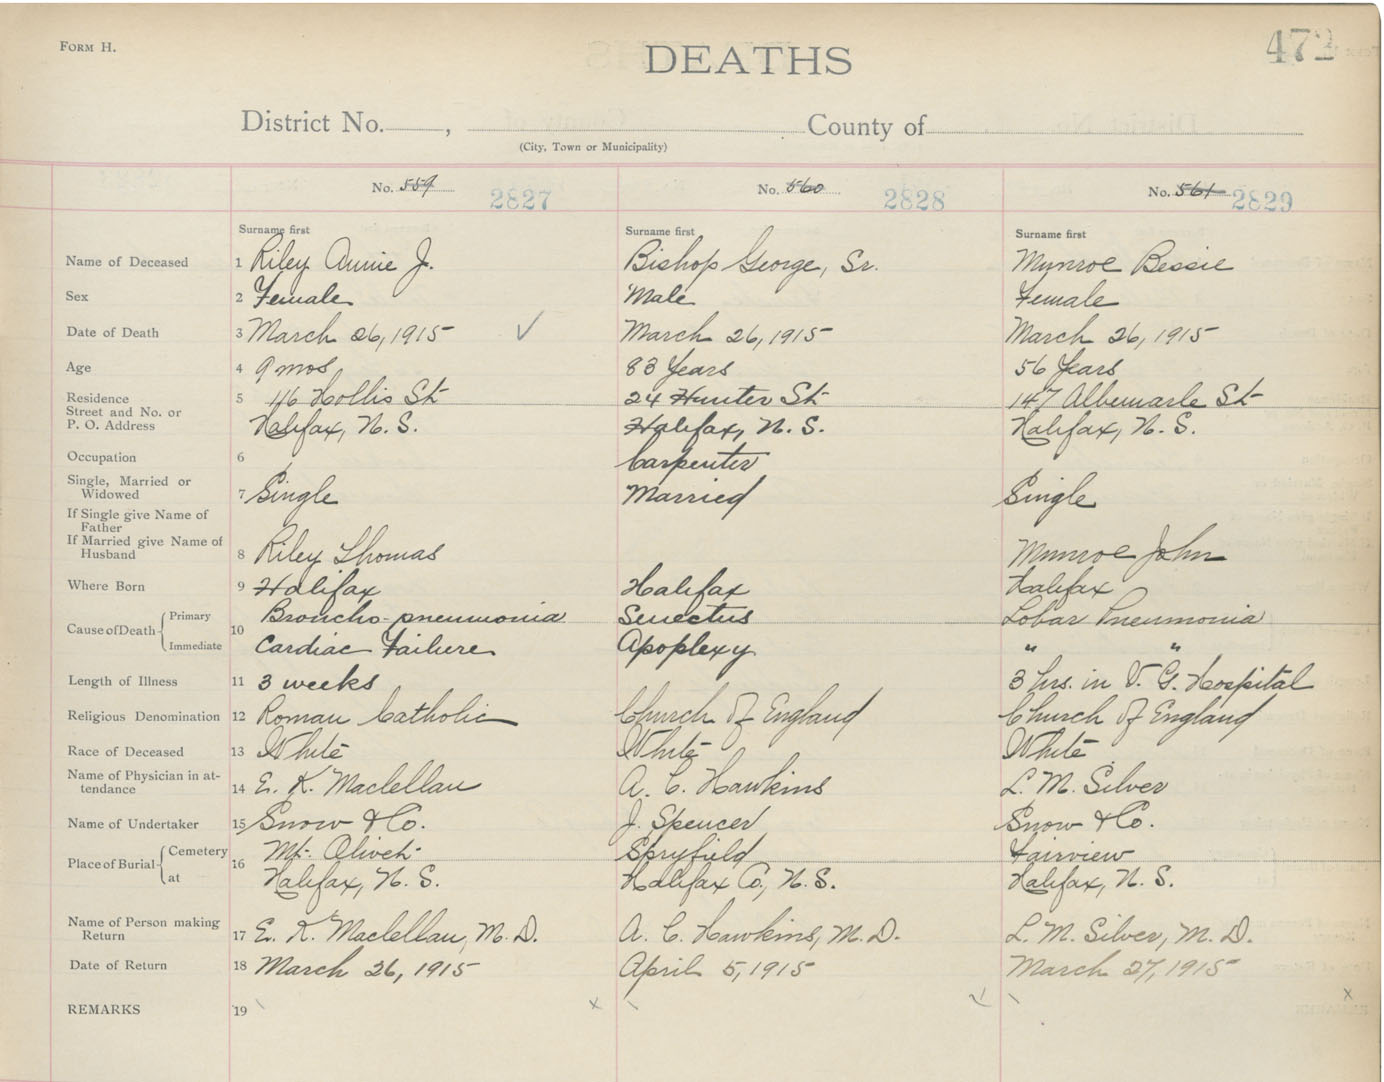 FORM H.
DEATHS
472
District No. , County of
(City, Town or Municipality)
No. 559 2827 No. 560 2828 No. 561 2829
Surname first Surname first Surname first
Name of Deceased 1 Riley Annie J. Bishop George, Sr. Munroe Bessie
Sex 2 Female Male Female
Date of Death 3 March 26, 1915 ✓ March 26, 1915 March 26, 1915
Age 4 9 mos 83 Years 56 Years
Residence 5 116 Hollis St 24 Hunter St 147 Albemarle St
Street and No. or
P. O. Address Halifax, N. S. Halifax, N. S. Halifax, N. S.
Occupation 6 Carpenter
Single, Married or
Widowed 7 Single Married Single
If Single give Name of
Father
If Married give Name of
Husband 8 Riley Thomas Munroe John
Where Born 9 Halifax Halifax Halifax
Cause of Death 10 Primary Broncho-pneumonia Senectus Lobar Pneumonia
Immediate Cardiac Failure Apoplexy " "
Length of Illness 11 3 weeks 3 hrs. in V. G. Hospital
Religious Denomination 12 Roman Catholic Church of England Church of England
Race of Deceased 13 White White White
Name of Physician in at-
tendance 14 E. K. Maclellan A. C. Hawkins L. M. Silver
Name of Undertaker 15 Snow & Co. J. Spencer Snow & Co.
Place of Burial 16 Cemetery Mt. Olivet Spryfield Fairview
at Halifax, N. S. Halifax Co., N. S. Halifax, N. S.
Name of Person making
Return 17 E. K. Maclellan, M. D. A. C. Hawkins, M. D. L. M. Silver, M. D.
Date of Return 18 March 26, 1915 April 5, 1915 March 27, 1915
REMARKS 19